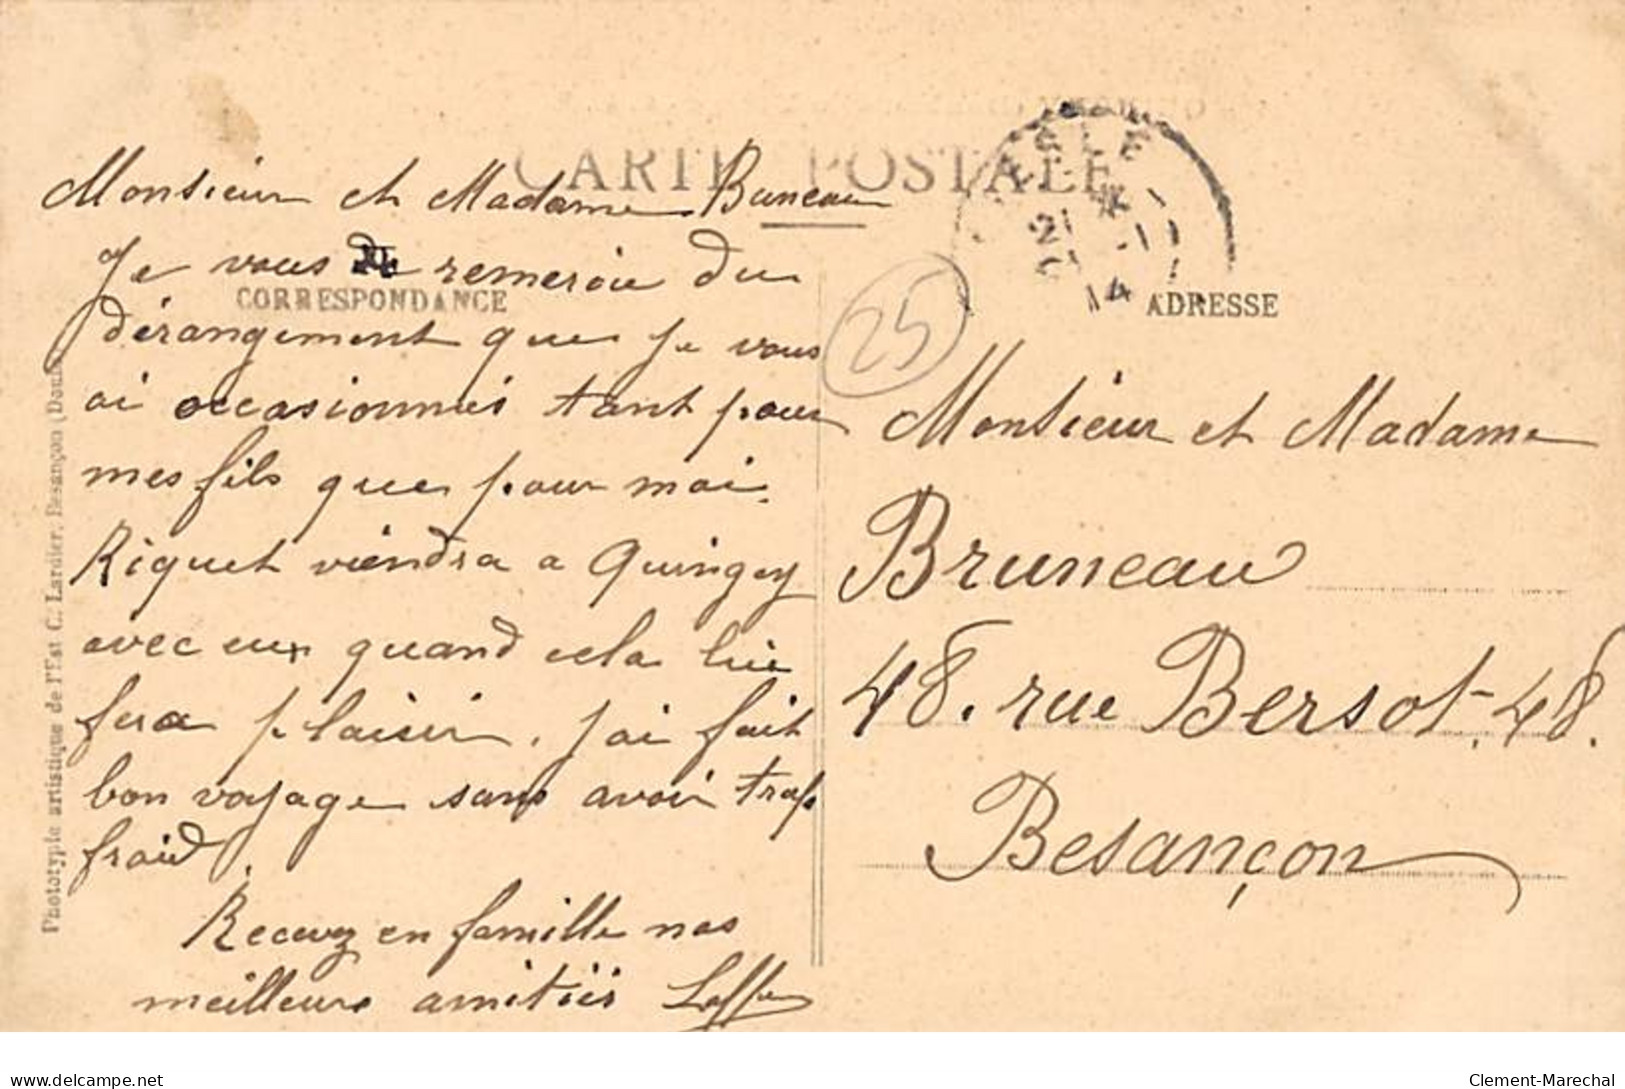 CARTE POSTALE
Monsieur et Madame Buneau
Je vous remercie du
CORRESPONDANCE
dérangement que je vous
ai occasionnés tant pour
mes fils que pour moi.
Riquet viendra a Quingey
avec eux quand cela lui
fera plaisir, j'ai fait
bon voyage sans avoir trop
froid.
Recevez en famille nos
meilleurs amitiés
Phototypie artistique de l'Est C. Lardier, Besançon (Doubs
25
ADRESSE
Monsieur et Madame
Bruneau
48. rue Bersot. 48.
Besançon
delcampe.net
Clement-Marechal